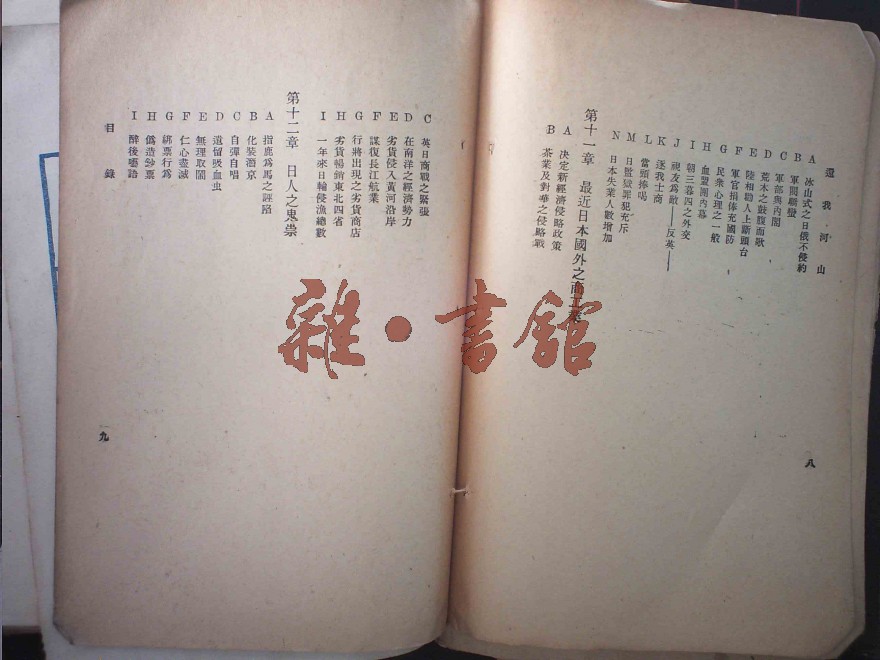 還我河山
A 冰山式之日俄不侵約
B 軍閥驕蠻
C 軍部與內閣
D 荒木之鼓腹面歌
E 陸相勸人上斷頭台
F 軍官捐俸充國防
G 民衆心理之一般
H 血盟團內幕
I 朝三暮四之外交
J 視友爲敵——反英——
K 逐我士商
L 當頭捧喝
M 日監獄罪犯充斥
N 日本失業人數增加
第十一章 最近日本國外之商工業
A 決定新經濟侵略政策
B 茶業及對華之侵略戰
八
C 英日商戰之緊張
D 在南洋之經濟勢力
E 劣貨侵入黃河沿岸
F 謀復長江航業
G 行將出現之劣貨商店
H 劣貨暢銷東北四省
I 一年來日輪侵漁總數
第十二章 日人之鬼祟
A 指鹿爲馬之誣陷
B 化裝潛京
C 自彈自唱
D 遺留吸血虫
E 無理取鬧
F 仁心盡滅
G 綁票行爲
H 僞造鈔票
I 醉後囈語
目錄
九
雜·書館